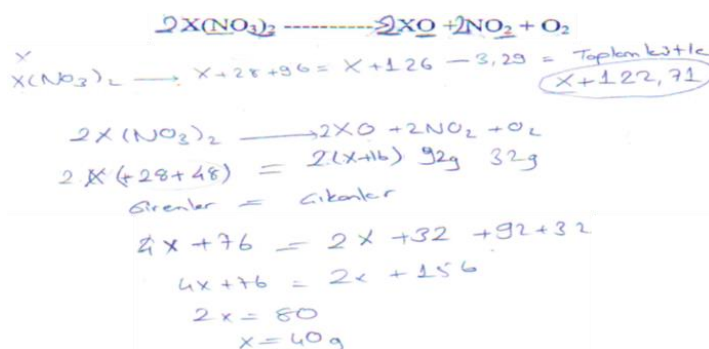 2X(NO₃)₂ ------------2XO +2NO₂ + O₂
X
X(NO₃)₂ → X+28+96 = X+126 - 3,29 = Toplam kütle
X+122,71
2X(NO₃)₂ → 2XO +2NO₂ +O₂
2 X (+28+48) = 2(X+16) 92g 32g
Girenler = Çıkanlar
4x +76 = 2x +32 +92+32
4x +76 = 2x + 156
2x = 80
x = 40g